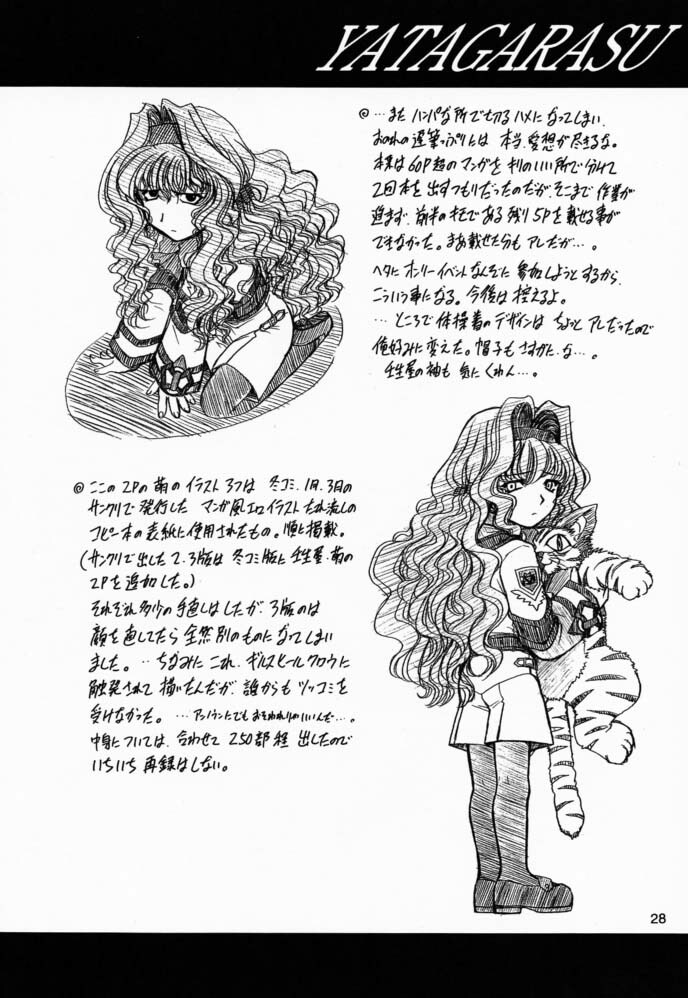 YATAGARASU
◎…また ハンパな所で切るハメになってしまい、
おのれの遅筆っぷりには 本当、愛想が尽きるな。
本来は60P超のマンガを キリのいい所で分けて
2回本を出すつもりだったのだが、そこまで 作業が
進まず、前半のキモである残り5Pを載せる事が
できなかった。まあ載せた分も アレだが…。
ヘタに オンリーイベントなんぞに 参加しようとするから、
こういう事になる。今後は控えるよ。
…ところで体操着のデザインは ちょっと アレだったので
俺好みに変えた。帽子も さすがに、な…。
壬生屋の袖も 気にくわん…。
◎ここの2Pの萌のイラスト3つは 冬コミ、1月、3月の
サンクリで発行した マンガ風エロイラストたれ流しの
コピー本の表紙に使用されたもの。順に掲載。
(サンクリで出した2、3版は 冬コミ版に 壬生屋、萌の
2Pを追加した。)
それぞれ多少の手直しはしたが、3版のは
顔を直してたら 全然別のものになってしまい
ました。‥ちなみに これ、ギルスヒールクロウに
触発されて 描いたんだが、誰からも ツッコミを
受けなかった。…アンノウンにでも おそわれりゃいいんだ…。
中身については、合わせて 250部程 出したので
いちいち 再録はしない。
28